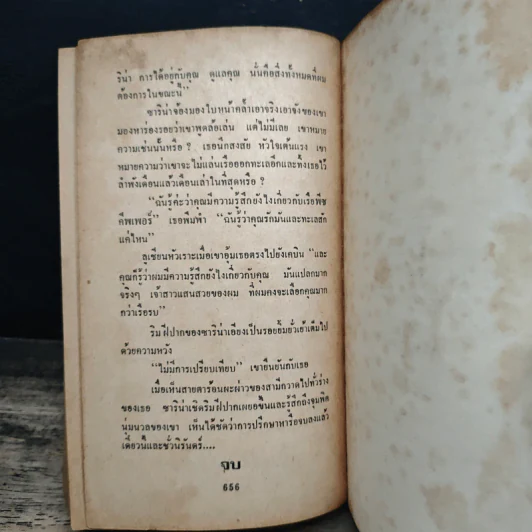 ริน่า การได้อยู่กับคุณ ดูแลคุณ นั่นคือสิ่งทั้งหมดที่ผม
ต้องการในขณะนี้”
ซาริน่าจ้องมองใบหน้าคล้ำเอาจริงเอาจังของเขา
มองหาร่องรอยว่าเขาพูดล้อเล่น แต่ไม่มีเลย เขาหมาย
ความเช่นนั้นหรือ ? เธอนึกสงสัย หัวใจเต้นแรง เขา
หมายความว่าเขาจะไม่แล่นเรือออกทะเลอีกและทิ้งเธอไว้
ลำพังเดือนแล้วเดือนเล่าในที่สุดหรือ ?
“ฉันรู้ค่ะว่าคุณมีความรู้สึกยังไงเกี่ยวกับเรือพีซ
คีพเพอร์” เธอพึมพำ “ฉันรู้ว่าคุณรักมันและทะเลสัก
แค่ไหน”
ลูเซียนหัวเราะเมื่อเขาอุ้มเธอตรงไปยังเคบิน “และ
คุณก็รู้ว่าผมมีความรู้สึกยังไงเกี่ยวกับคุณ มันแปลกมาก
จริงๆ เจ้าสาวแสนสวยของผม ที่ผมคงจะเลือกคุณมาก
กว่าเรือรบ”
ริมฝีปากของซาริน่าเอียงเป็นรอยยิ้มยั่วเย้าเต็มไป
ด้วยความหวัง
“ไม่มีการเปรียบเทียบ” เขายืนยันกับเธอ
เมื่อเห็นสายตาร้อนผะผ่าวของสามีกวาดไปทั่วร่าง
ของเธอ ซาริน่าเชิดริมฝีปากเผยอขึ้นและรู้สึกถึงจุมพิต
นุ่มนวลของเขา เห็นได้ชัดว่าการปรึกษาหารือจบลงแล้ว
เดี๋ยวนี้และชั่วนิรันดร์....
จบ
656